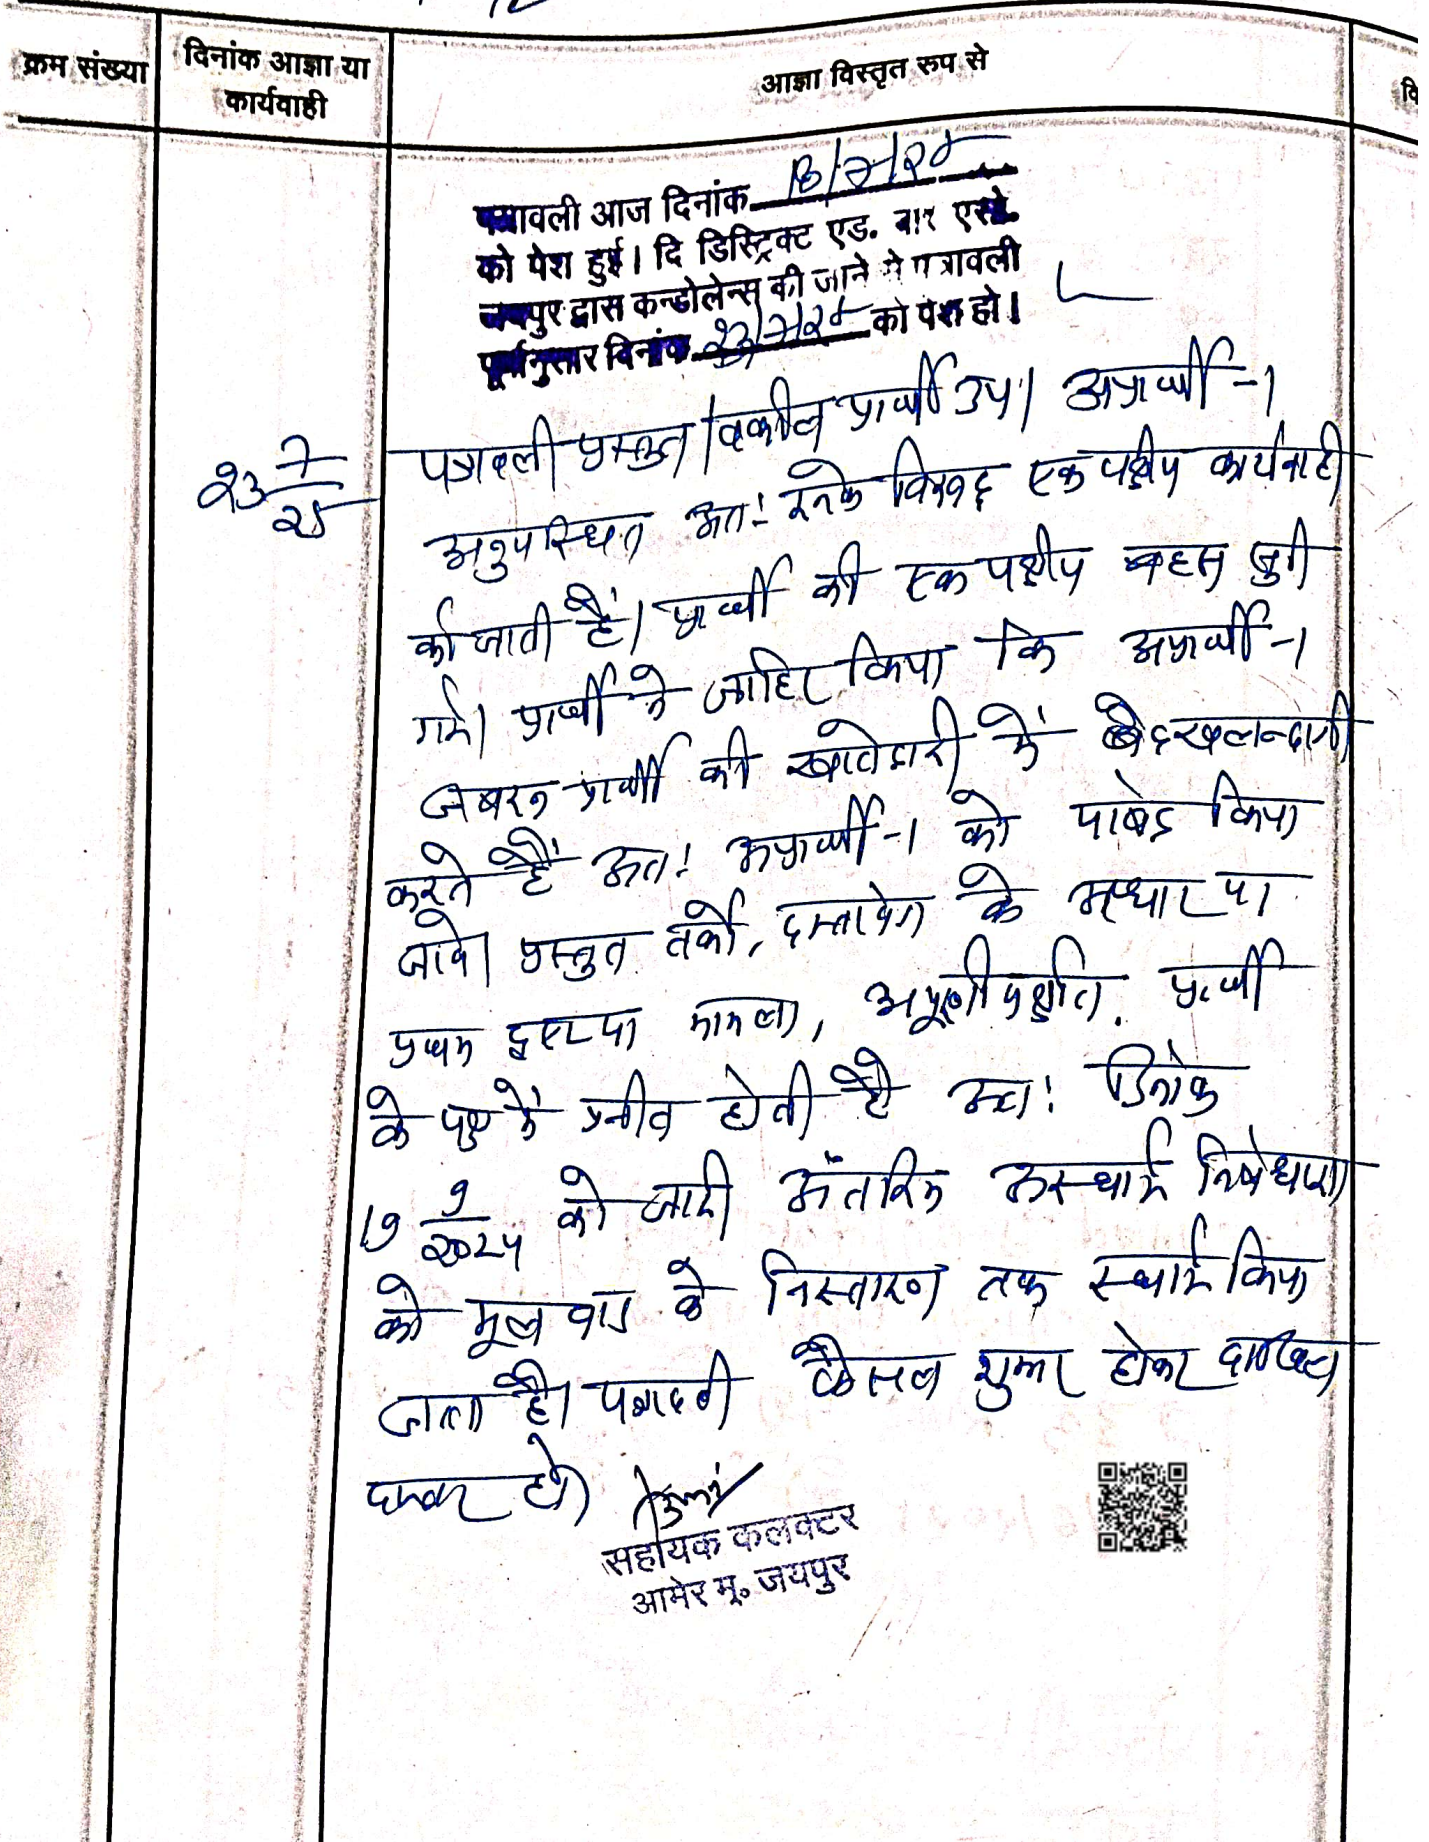 क्रम संख्या
दिनांक आज्ञा या
कार्यवाही
आज्ञा विस्तृत रुप से
वि
पत्रावली आज दिनांक
को पेश हुई। दि डिस्ट्रिक्ट एड. बार एसो.
जयपुर द्वारा कन्डोलेन्स की जाने से पत्रावली
पूर्वानुसार दिनांक 23/7/25 को पेश हो।
23 7/25
पत्रावली प्रस्तुत। वकील प्रार्थी उप। अप्रार्थी-1
अनुपस्थित अतः इनके विरुद्ध एक पक्षीय कार्यवाही
की जाती है। प्रार्थी की एक पक्षीय बहस सुनी
गई। प्रार्थी ने जाहिर किया कि अप्रार्थी-1
जबरन प्रार्थी की खातेदारी में
करते हैं अतः अप्रार्थी-1 को पाबंद किया
जावे। प्रस्तुत तर्को, दस्तावेज के आधार पर
प्रथम दृष्टया मामला, अपूर्णीय क्षति, प्रार्थी
के पक्ष में प्रतीत होती है अतः दिनांक
19 9/2024 को जारी अंतरिम अस्थाई निषेधाज्ञा
को मूल वाद के निस्तारण तक स्थाई किया
जाता है। पत्रावली फैसल शुमार होकर दाखिल
दफ्तर हो।
सहायक कलक्टर
आमेर मु. जयपुर